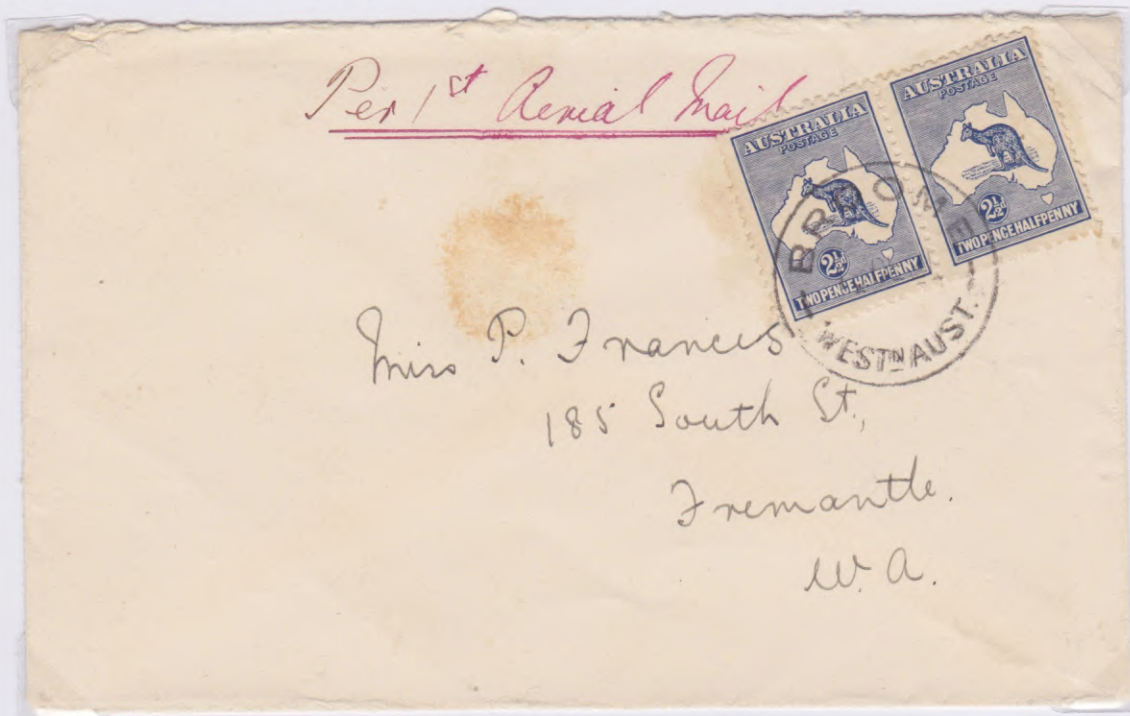 Per 1st Aerial Mail
AUSTRALIA
POSTAGE
2½d
TWO PENCE HALFPENNY
AUSTRALIA
POSTAGE
2½d
TWO PENCE HALFPENNY
BROOME
WESTN AUST.
Miss P. Francis
185 South St,
Fremantle.
W. A.